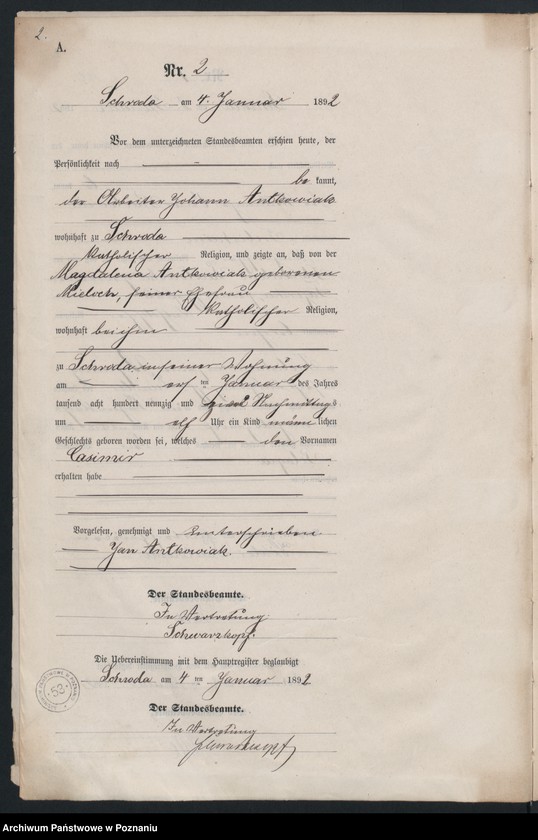 2.
A.
Nr. 2
Schroda am 4. Januar 1892
Vor dem unterzeichneten Standesbeamten erschien heute, der
Persönlichkeit nach
be kannt,
der Arbeiter Johann Antkowiak
wohnhaft zu Schroda
katholischer Religion, und zeigte an, daß von der
Magdalena Antkowiak geborenen
Mieloch, seiner Ehefrau
katholischer Religion,
wohnhaft bei ihm
zu Schroda in seiner Wohnung
am ersten Januar des Jahres
tausend acht hundert neunzig und zwei Nachmittags
um elf Uhr ein Kind männlichen
Geschlechts geboren worden sei, welches den Vornamen
Casimir
erhalten habe
Vorgelesen, genehmigt und unterschrieben
Jan Antkowiak.
Der Standesbeamte.
In Vertretung
Schwarzkopf.
Die Uebereinstimmung mit dem Hauptregister beglaubigt
Schroda am 4 ten Januar 1892
Der Standesbeamte.
In Vertretung
Schwarzkopf
53
Archiwum Państwowe w Poznaniu